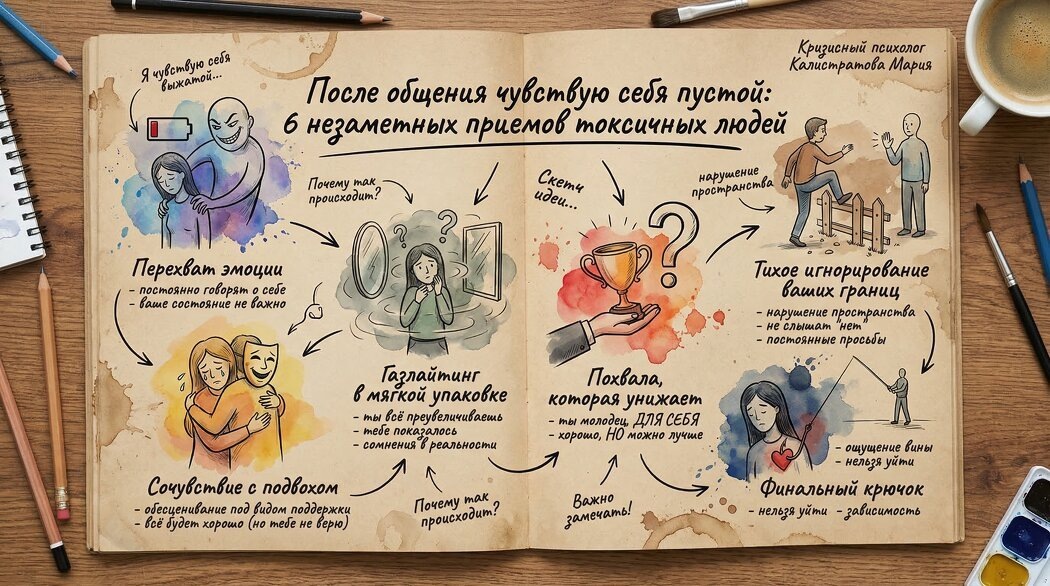 Кризисный психолог
Калистратова Мария
Я чувствую себя
выжатой...
После общения чувствую себя пустой:
6 незаметных приемов токсичных людей
Перехват эмоции
- постоянно говорят о себе
- ваше состояние не важно
Сочувствие с подвохом
- обесценивание под видом поддержки
- всё будет хорошо (но тебе не верю)
Почему так
происходит?
Газлайтинг
в мягкой упаковке
- ты всё преувеличиваешь
- тебе показалось
- сомнения в реальности
Почему так
происходит?
Скетч
идеи...
Похвала,
которая унижает
- ты молодец, ДЛЯ СЕБЯ
- хорошо, НО можно лучше
Важно
замечать!
нарушение
пространства
Тихое игнорирование
ваших границ
- нарушение пространства
- не слышат "нет"
- постоянные просьбы
- ощущение вины
- нельзя уйти
Финальный крючок
- нельзя уйти - зависимость